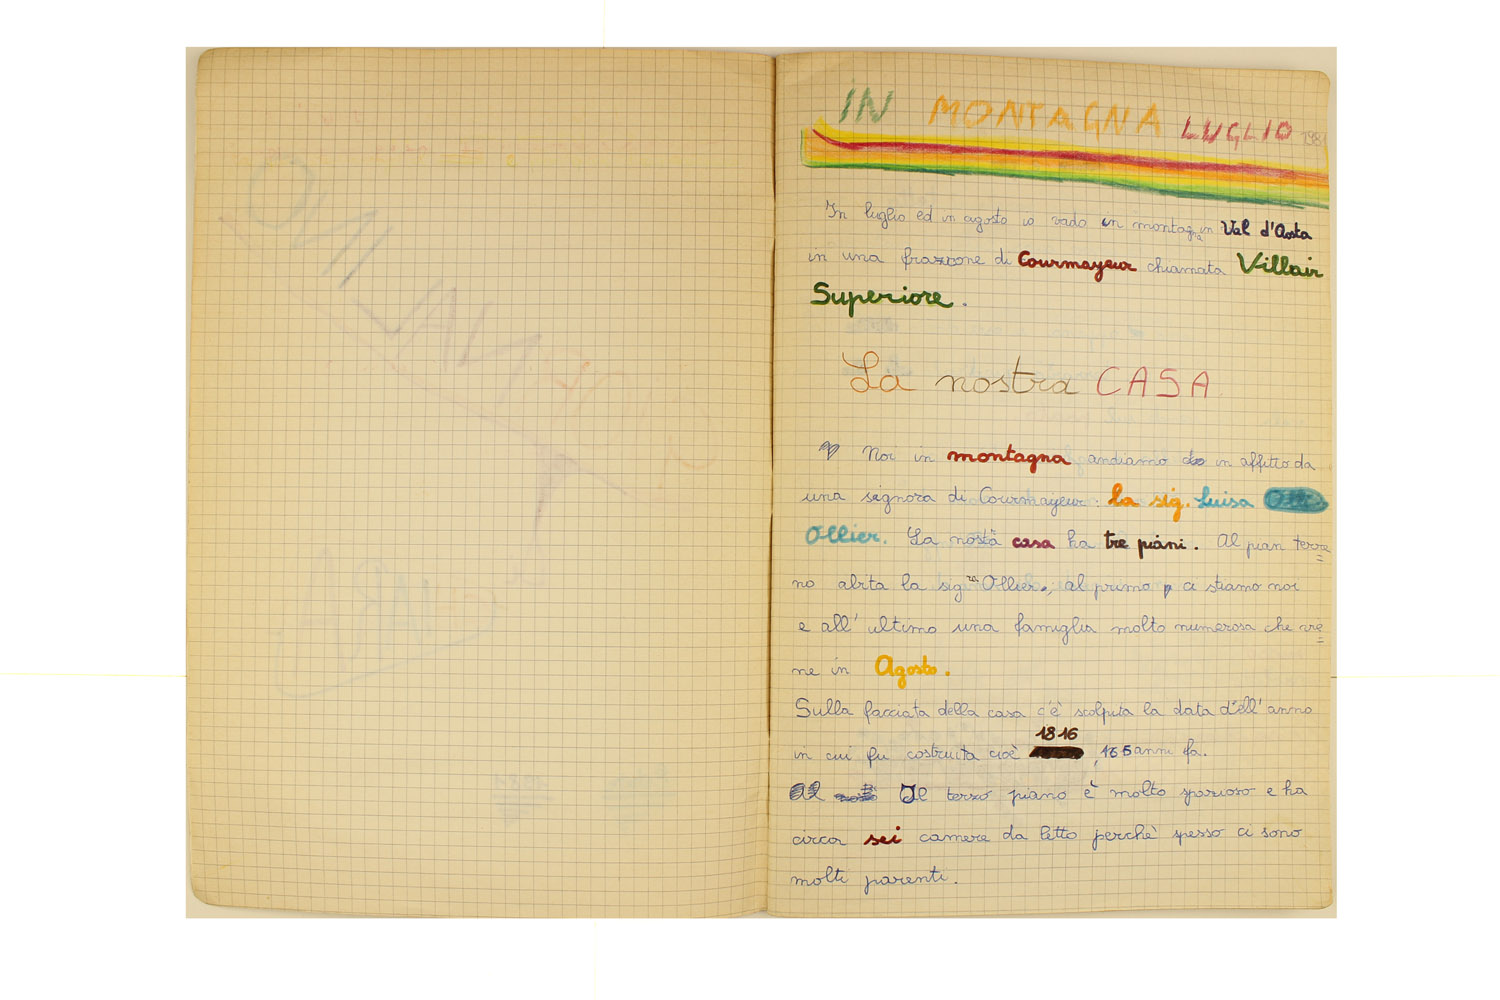 IN MONTAGNA LUGLIO 1981
In luglio ed in agosto io vado in montagna in Val d'Aosta
in una frazione di Courmayeur chiamata Villair
Superiore.
La nostra CASA
Noi in montagna andiamo in affitto da
una signora di Courmayeur: la sig. Luisa
Ollier. La nostra casa ha tre piani. Al pian terre
no abita la sig.ra Ollier, al primo ci stiamo noi
e all' ultimo una famiglia molto numerosa che vie
ne in Agosto.
Sulla facciata della casa c'è scolpita la data dell' anno
in cui fu costruita cioè 1816, 165 anni fa.
Il terzo piano è molto spazioso e ha
circa sei camere da letto perchè spesso ci sono
molti parenti.